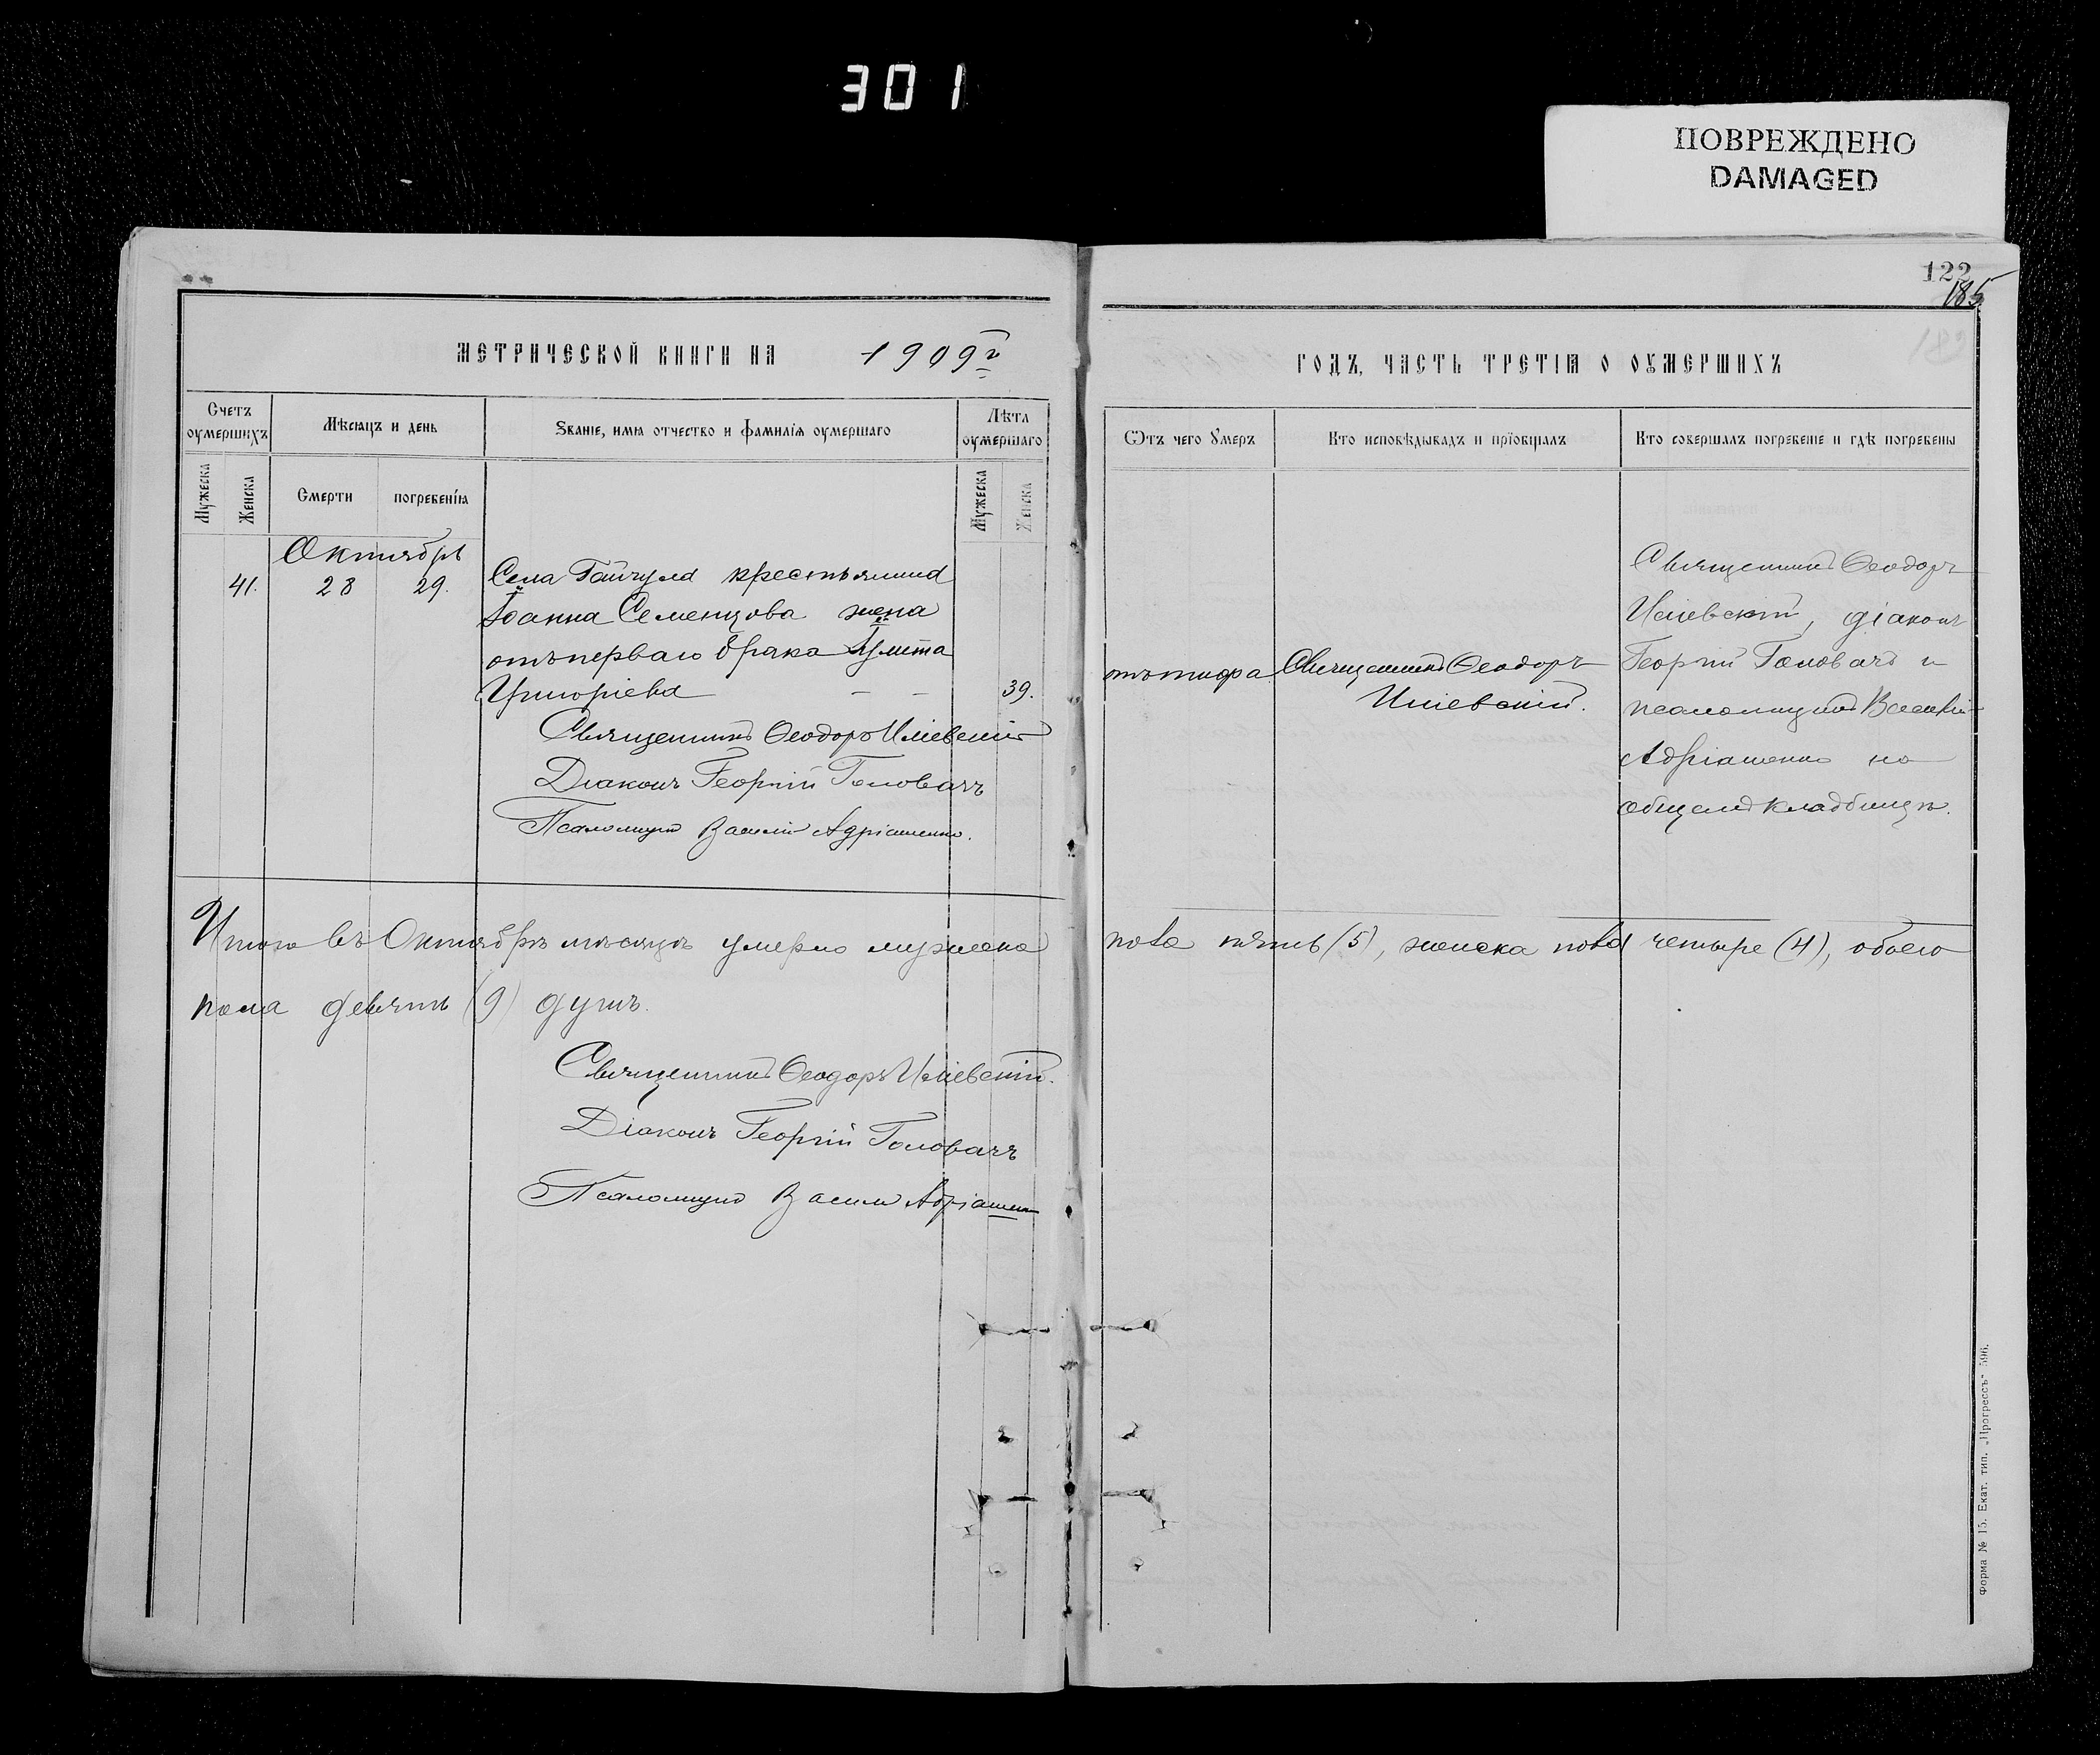 301
ПОВРЕЖДЕНО
DAMAGED
122
185
МЕТРИЧЕСКОЙ КНИГИ НА 1909 г
Счетъ оумершихъ
Мѣсяцъ и день
Званіе, имя отчество и фамилія оумершаго
Лѣта оумершаго
Мужеска
Женска
Смерти
погребенія
Мужеска
Женска
Октябрь
41. 28 29. Села Гайчула крестьянина
Іоанна Семенцова жена
отъ перваго брака Іулита
Григоріева — — 39.
Священникъ Ѳеодоръ Иліевскій
Діаконъ Георгій Головачъ
Псаломщикъ Василій Адріаненко.
Итого въ Октябрѣ мѣсяцѣ умерло мужеска
пола девять (9) душъ.
Священникъ Ѳеодоръ Иліевскій.
Діаконъ Георгій Головачъ
Псаломщикъ Василій
ГОДЪ, ЧАСТЬ ТРЕТІЯ О ОУМЕРШИХЪ
Ѿтъ чего Умеръ
Кто исповѣдывалъ и пріобщалъ
Кто совершалъ погребеніе и гдѣ погребены
отъ тифа
Священникъ Ѳеодоръ
Иліевскій.
Священникъ Ѳеодоръ
Иліевскій, діаконъ
Георгій Головачъ и
псаломщикъ Василій
Адріаненко на
общемъ кладбищѣ.
пола пять (5), женска пола четыре (4), обоего
Форма № 15. Екат. тип. „Прогрессъ" 596.